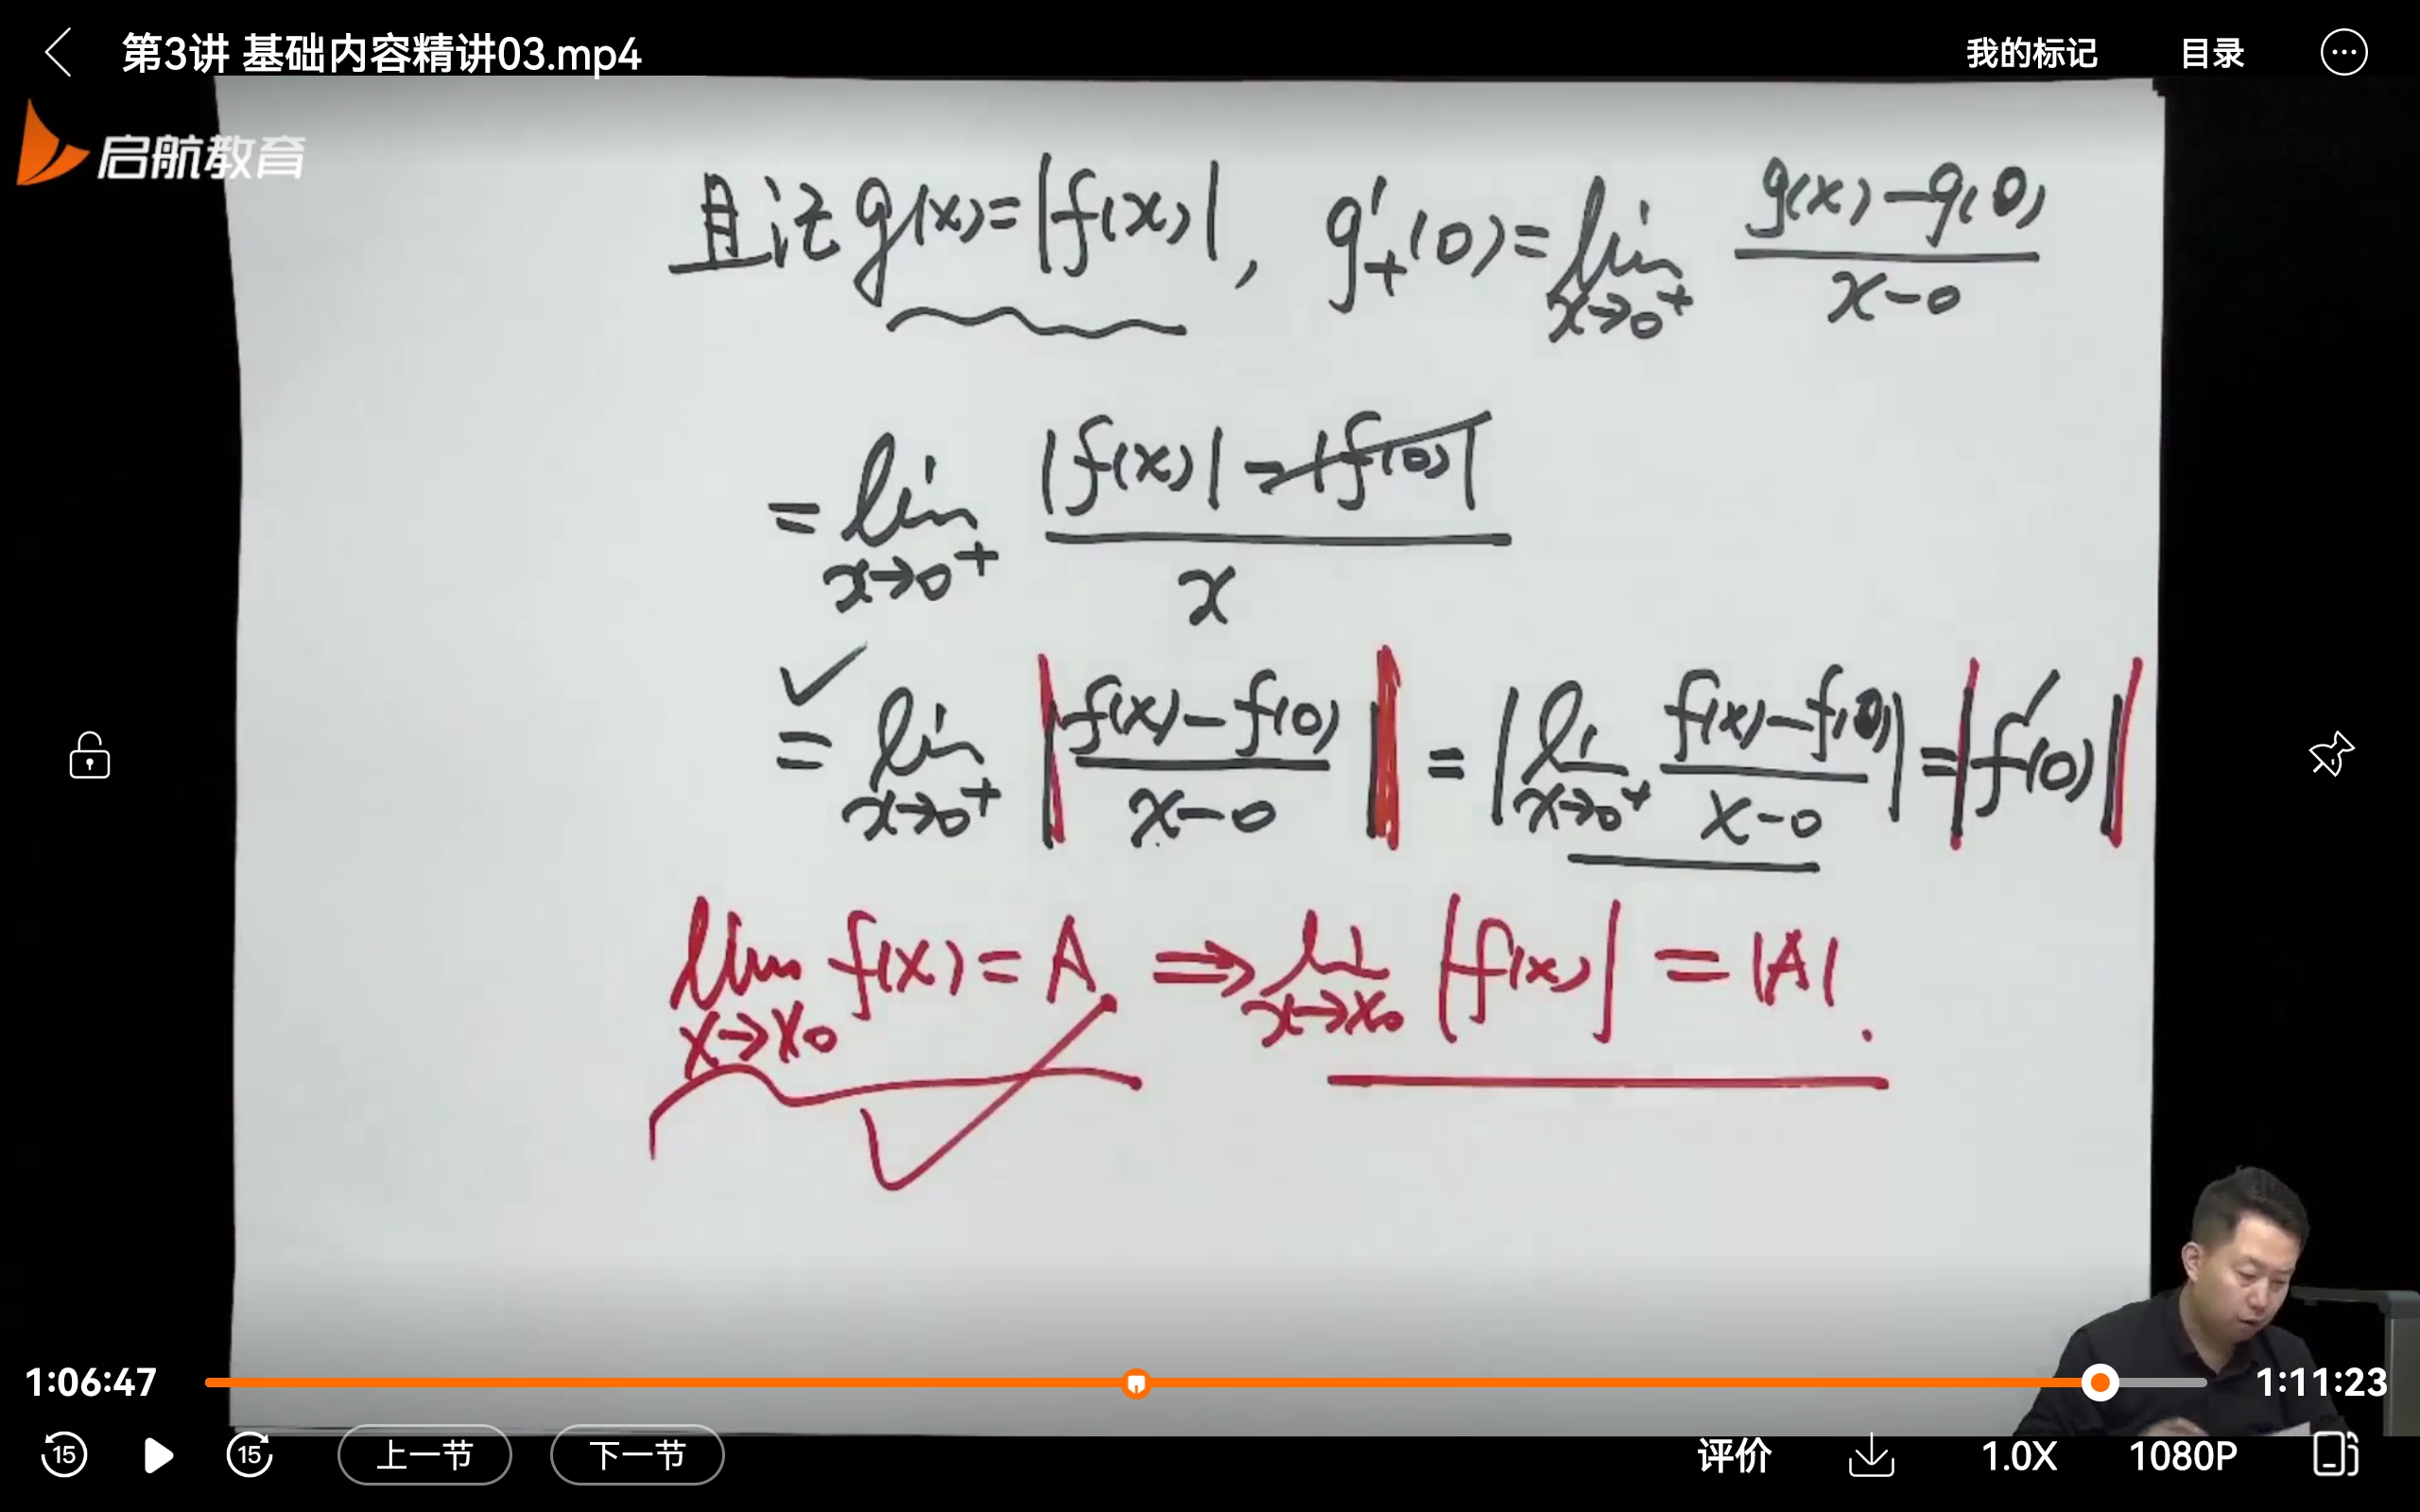 第3讲 基础内容精讲03.mp4
我的标记
目录
启航教育
且记 g(x)=|f(x)|, g'₊(0)=lim x→0⁺ (g(x)-g(0))/(x-0)
=lim x→0⁺ (|f(x)|-|f(0)|)/x
✓
=lim x→0⁺ |(f(x)-f(0))/(x-0)| = |lim x→0⁺ (f(x)-f(0))/(x-0)| = |f'(0)|
lim x→x₀ f(x)=A. ⇒ lim x→x₀ |f(x)| = |A|.
1:06:47
1:11:23
15
15
上一节
下一节
评价
1.0X
1080P